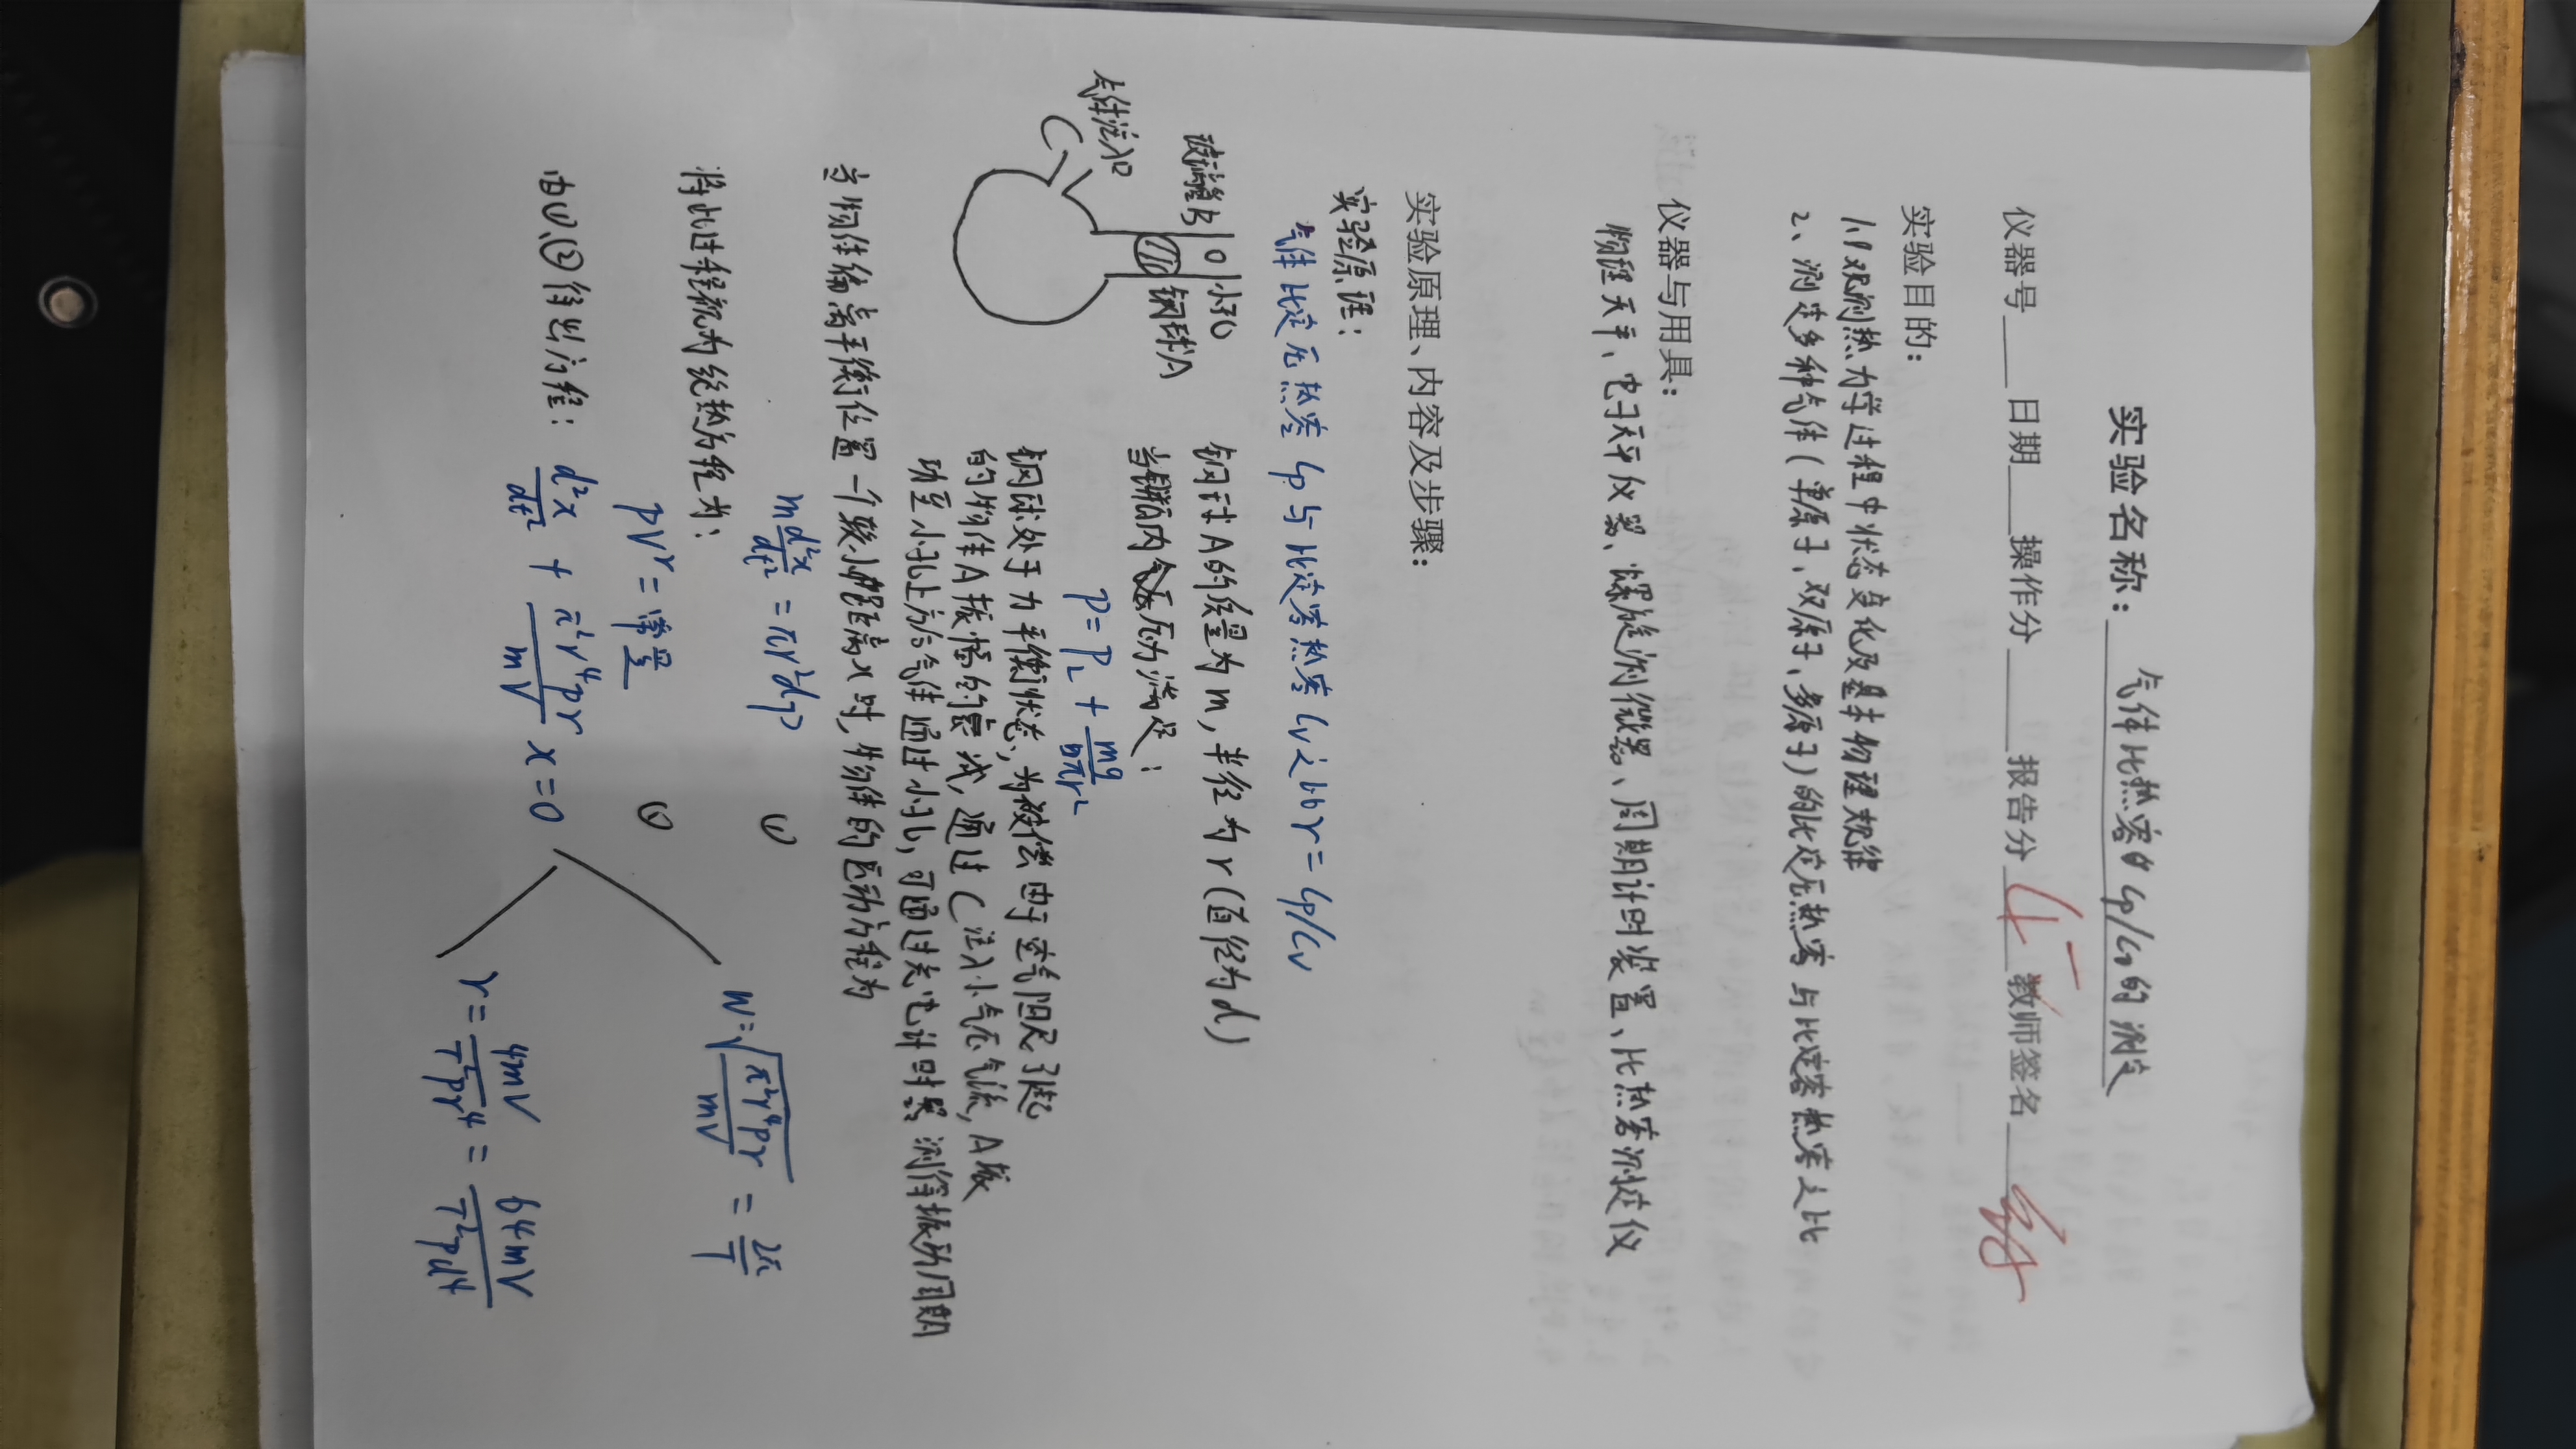 实验名称： 气体比热容比Cp/Cv的测定
仪器号 日期 操作分 报告分 教师签名
实验目的：
1、观测热力学过程中状态变化及基本物理规律
2、测定多种气体(单原子、双原子、多原子)的比定压热容与比定容热容之比
仪器与用具：
物理天平、电子天平仪器、螺旋测微器、周期计时装置、比热容测定仪
实验原理、内容及步骤：
实验原理：
气体比定压热容Cp与比定容热容Cv之比γ=Cp/Cv
玻璃管B
小孔
钢球A
气体注入口
C
钢球A的质量为m, 半径为r(直径为d)
当瓶内气压力满足：
P = P_L + mg/πr²
钢球处于力平衡状态, 为补偿由于空气阻尼引起
的物体A振幅的衰减, 通过C注入小气压气流, A振
动至小孔上方后气体通过小孔, 可通过光电计时器测得振动周期
当物体偏离平衡位置一个较小距离x时, 物体的运动方程为
m d²x/dt² = πr²dp ①
将此过程视为绝热方程为：
PV^γ = 常量 ②
由①、②得出方程： d²x/dt² + π²r⁴pγ/mV x = 0
w = √(π²r⁴pγ/mV) = 2π/T
γ = 4mV/T²pr⁴ = 64mV/T²pd⁴